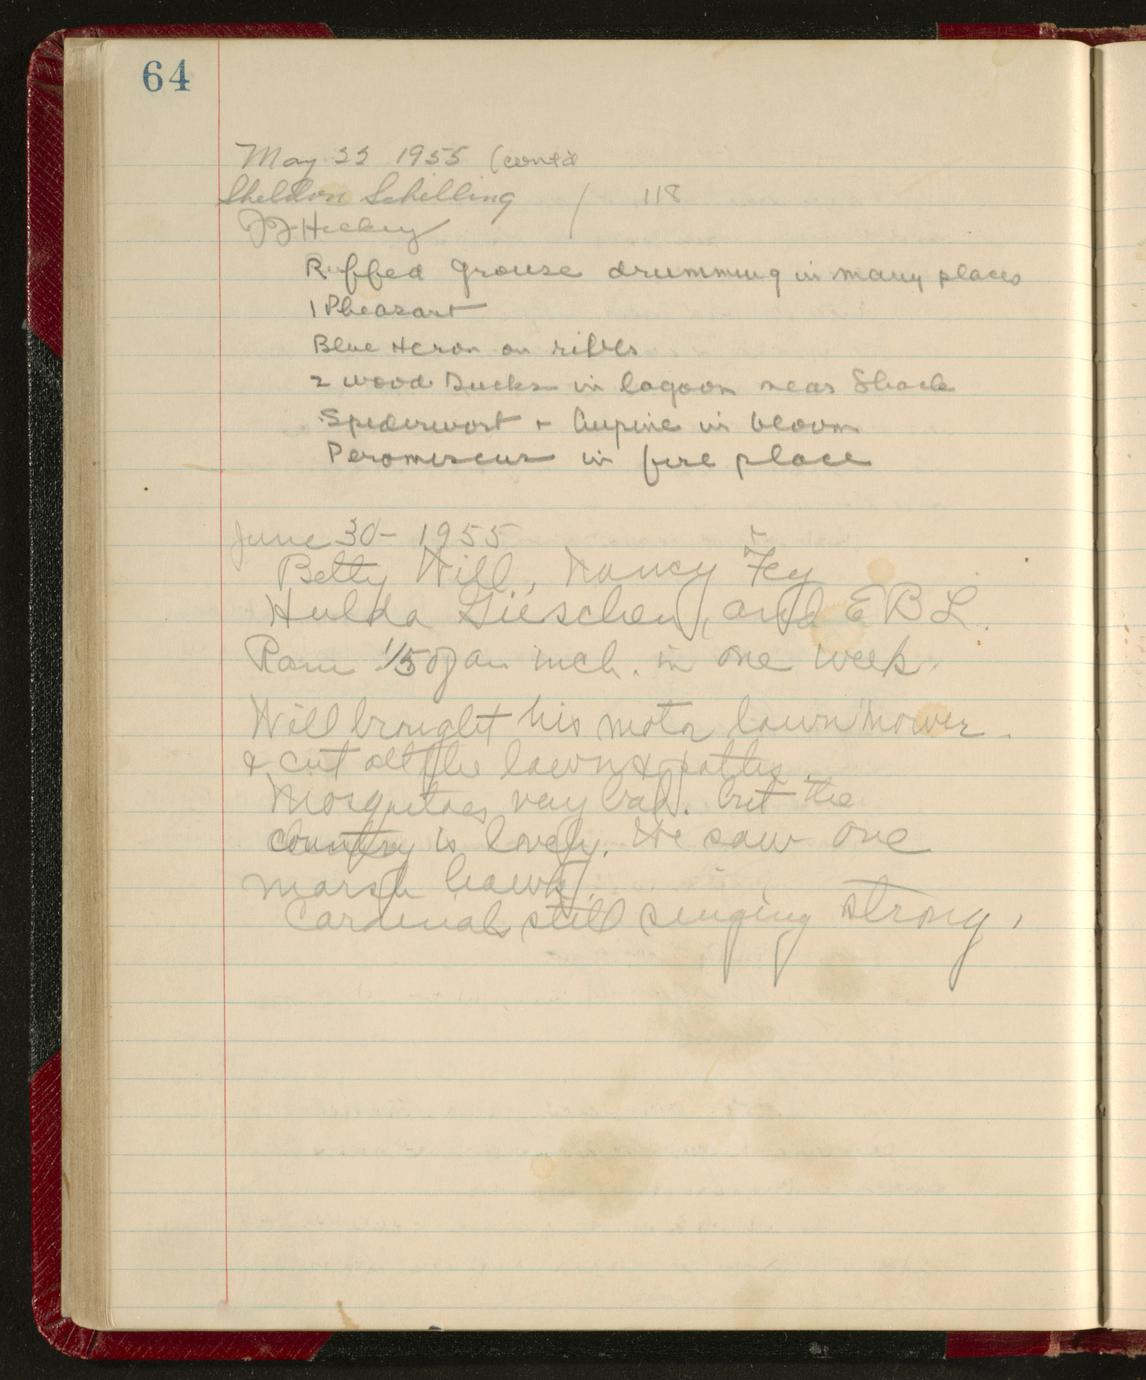 64
May 22 1955 (cont'd
Sheldon Schilling / 118
JJ Hickey
Ruffed Grouse drumming in many places
1 Pheasant
Blue Heron on
2 Wood Ducks in lagoon near Shack
Spiderwort + Lupine in bloom
Peromyscus in fire place
June 30- 1955
Betty Will, Nancy Fey
Hulda Gieschen, and EBL.
Rain 1/50 of an inch. in one week.
Will brought his motor lawn mower.
& cut all the lawn & paths.
Mosquitoes very bad. but the
country is lovely. We saw one
marsh hawk.
Cardinal still singing strong.